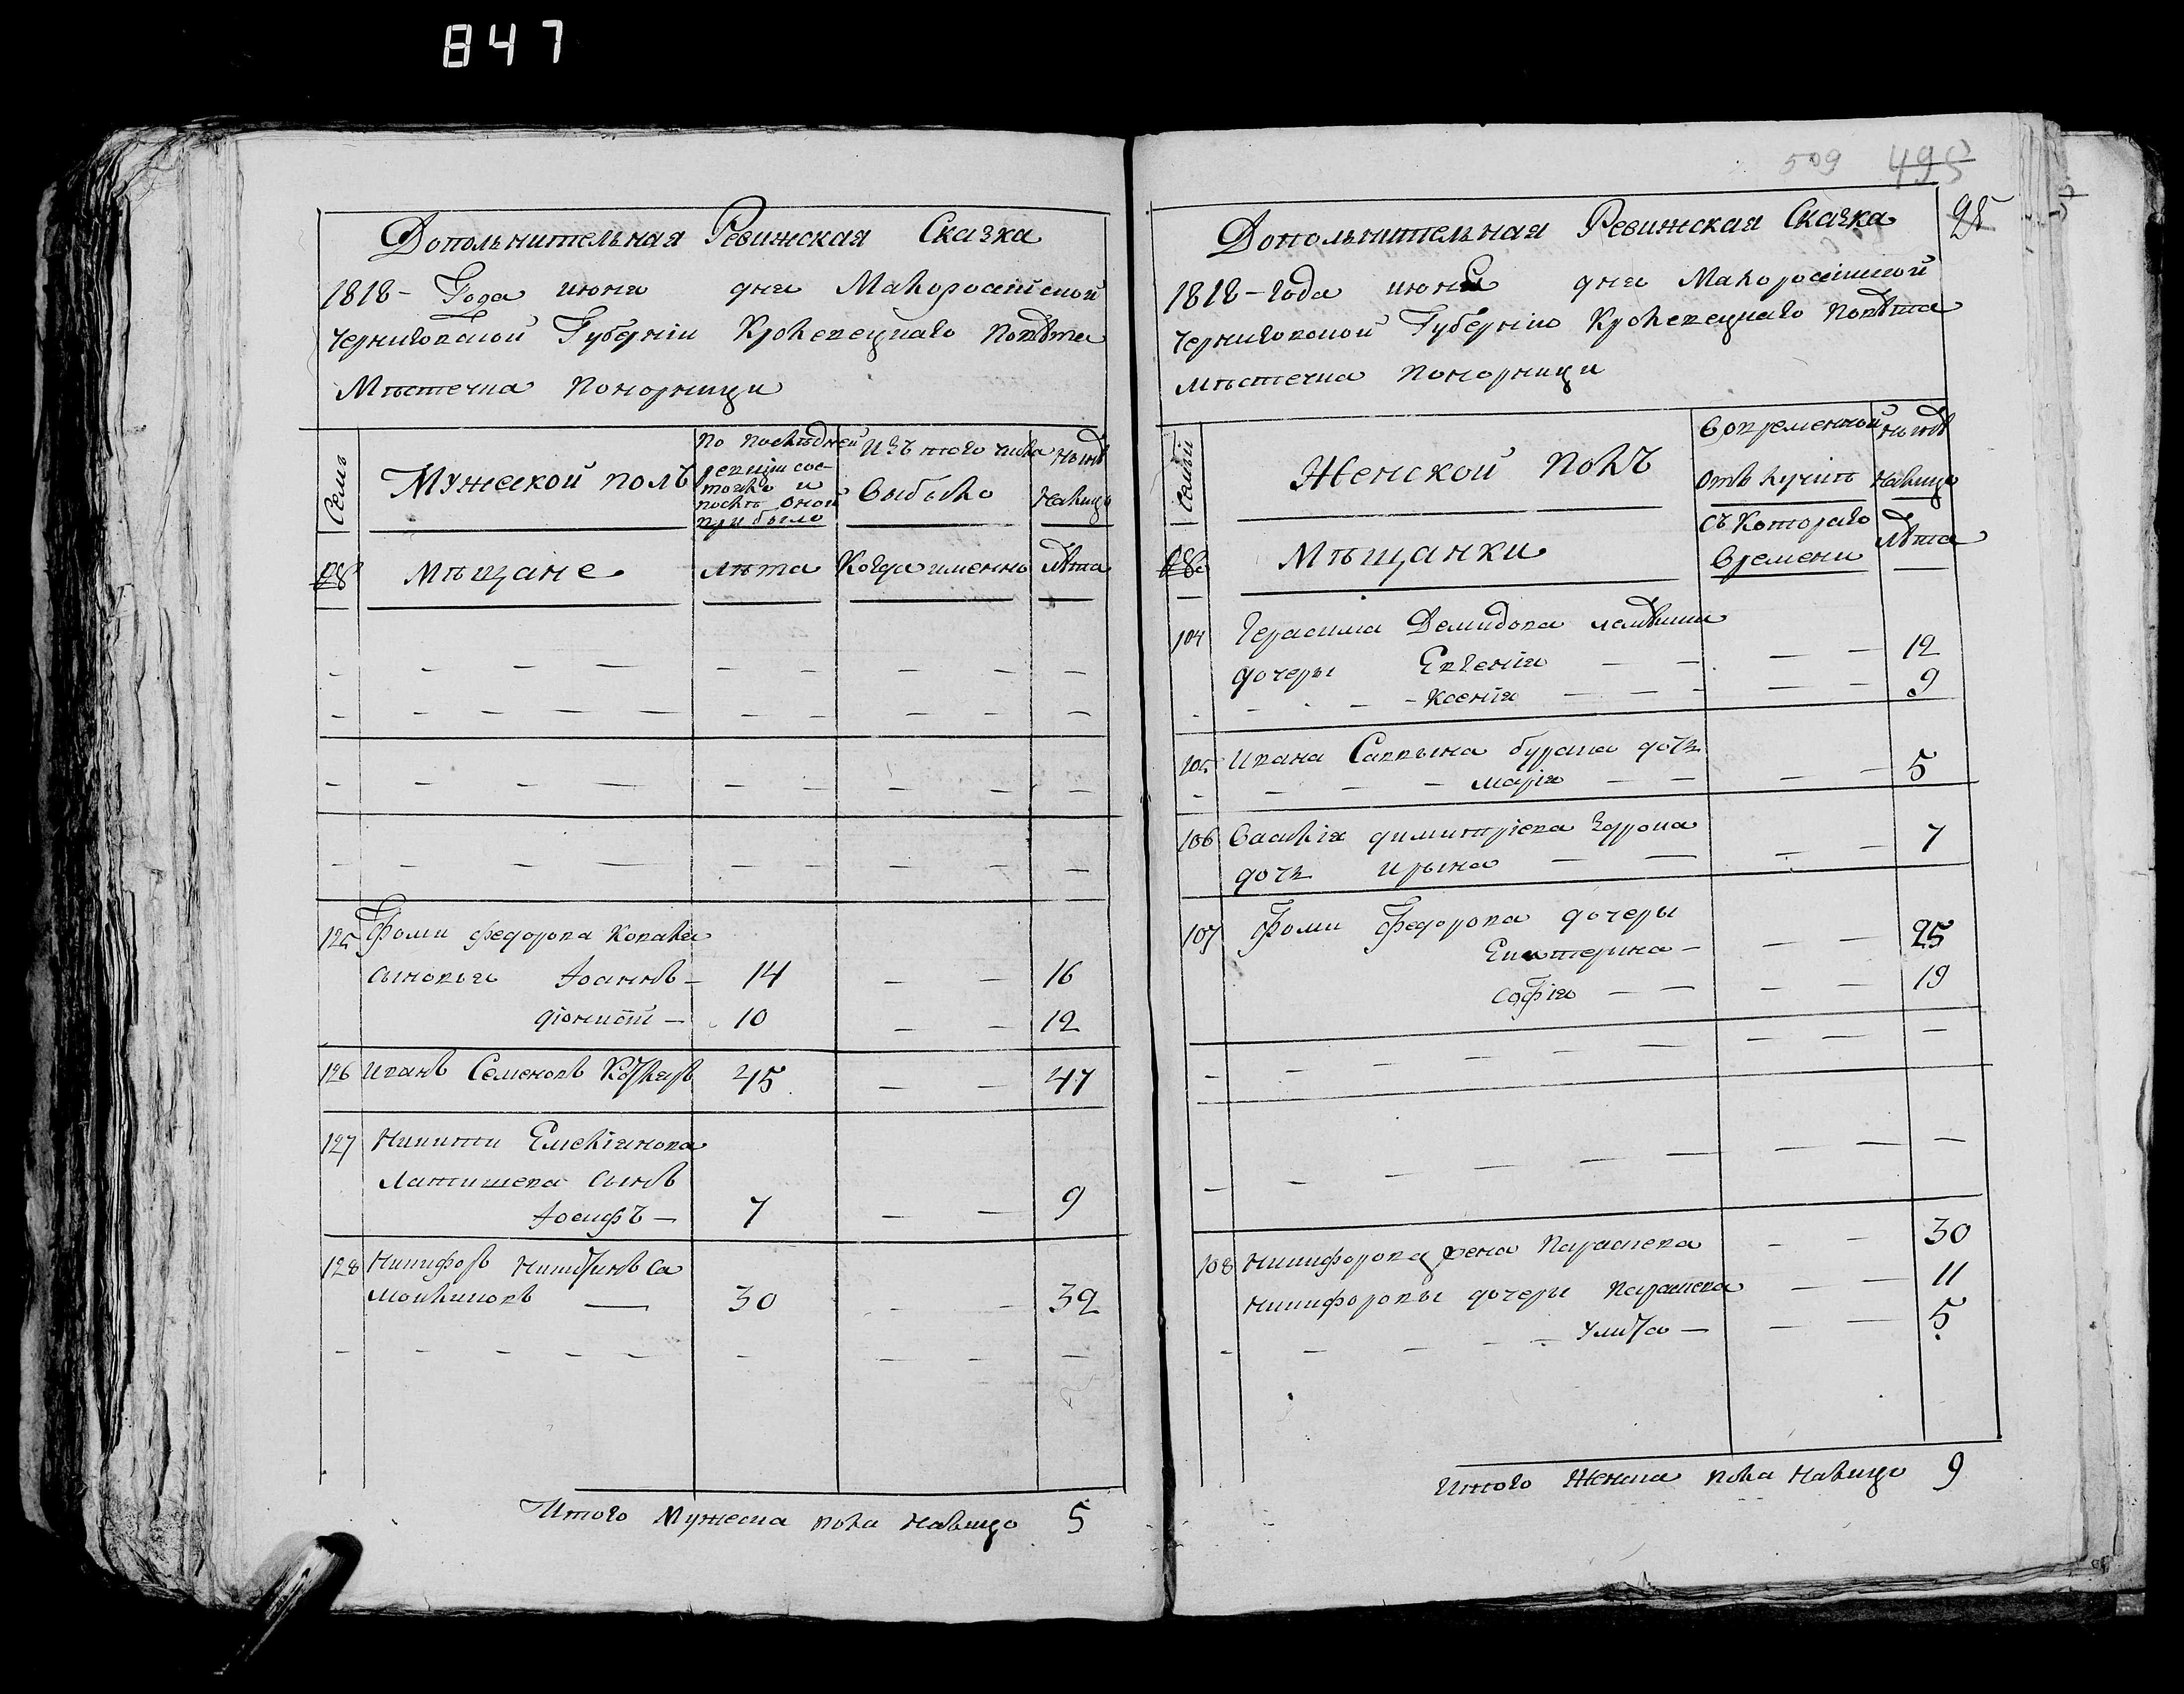 847
Дополнительная Ревижская Сказка
1818- Года июня дня Малоросійской
Черниговской Губерніи Кролевецкаго Повѣта
Мѣстечка Понорници
Семьи
Мужеской полъ
По послѣдней
ревизіи сос-
тояло и
послѣ оной
прибыло
Изъ того числа
выбыло
Нынѣ
налицо
№
Мѣщане
Лѣта
Когда именно
Лѣта
125 Фоми Федорова Ковале
сыновья Іоаннъ — 14 — — 16
Діонисій — 10 — — 12
126 Иванъ Семеновъ 45 — — 47
127 Никити Емеліянова
Латишева сынъ
Іосифъ — 7 — — 9
128 Никифоръ Никитинъ Са
мойликовъ — 30 — — 32
Итого Мужеска пола налицо 5
509 495
Дополнительная Ревижская Сказка
1818-года июня дня Малоросійской
Черниговской Губерніи Кролевецкаго Повѣта
Мѣстечка Понорници
Семьи
Женской полъ
Во временной
отлучкѣ
Нынѣ
налицо
№
Мѣщанки
Съ котораго
времени
Лѣта
104 Герасима Демидова
дочеры Евгенія — — — — 12
Ксенія — — — — — 9
105 Ивана Саввина дочь
Марія — — — — 5
106 Василія Димитріева
дочь Ирина — — — — 7
107 Фоми Федорова дочеры
Екатерина — — — 25
Софія — — — — 19
108 Никифорова жена Параскева — — 30
Никифоровы дочери Параскева — — 11
Улита — — — 5
Итого Женска пола налицо 9